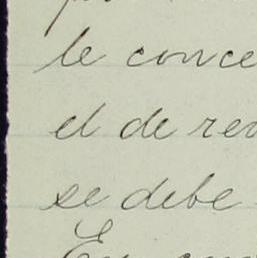 le conce
el de rec
se debe
En